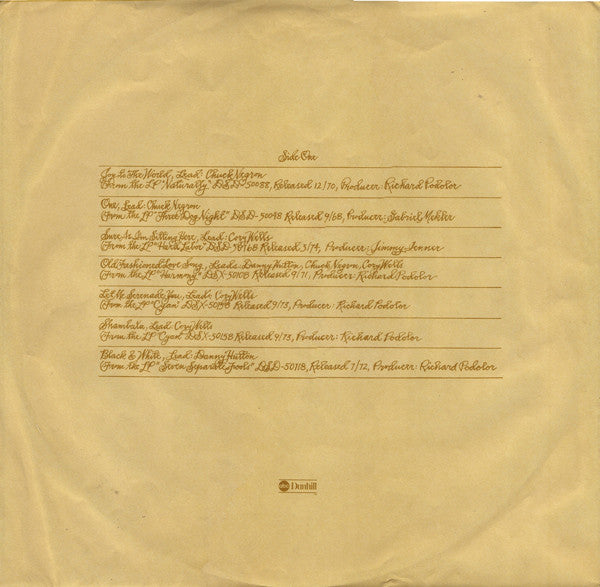 Side One
Joy To The World, Lead: Chuck Negron
(From the LP "Naturally" DSD-50088, Released 12/70, Producer: Richard Podolor
One, Lead: Chuck Negron
(From the LP "Three Dog Night" DSD-50048 Released 9/68, Producer: Gabriel Mekler
Sure As I'm Sitting Here, Lead: Cory Wells
(From the LP "Hard Labor" DSD-50168 Released 3/74, Producer: Jimmy Ienner
Old Fashioned Love Song, Leads: Danny Hutton, Chuck Negron, Cory Wells
(From the LP "Harmony" DSX-50108 Released 9/71, Producer: Richard Podolor
Let Me Serenade You, Lead: Cory Wells
(From the LP "Cyan" DSX-50158 Released 9/73, Producer: Richard Podolor
Shambala, Lead: Cory Wells
(From the LP "Cyan" DSX-50158 Released 9/73, Producer: Richard Podolor
Black & White, Lead: Danny Hutton
(From the LP "Seven Separate Fools" DSD-50118, Released 7/72, Producer: Richard Podolor
abc Dunhill